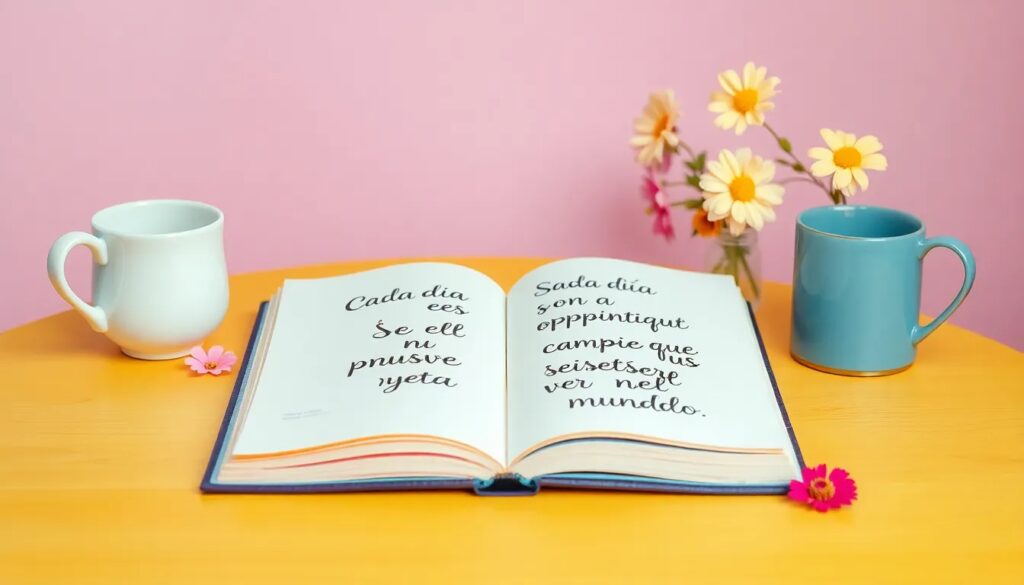 Cada dia
ees
Se ell
nu
pnusve
yeta
Sada día
son a
opppintiqut
campie que
seisetserl qus
ver nel
munddo.